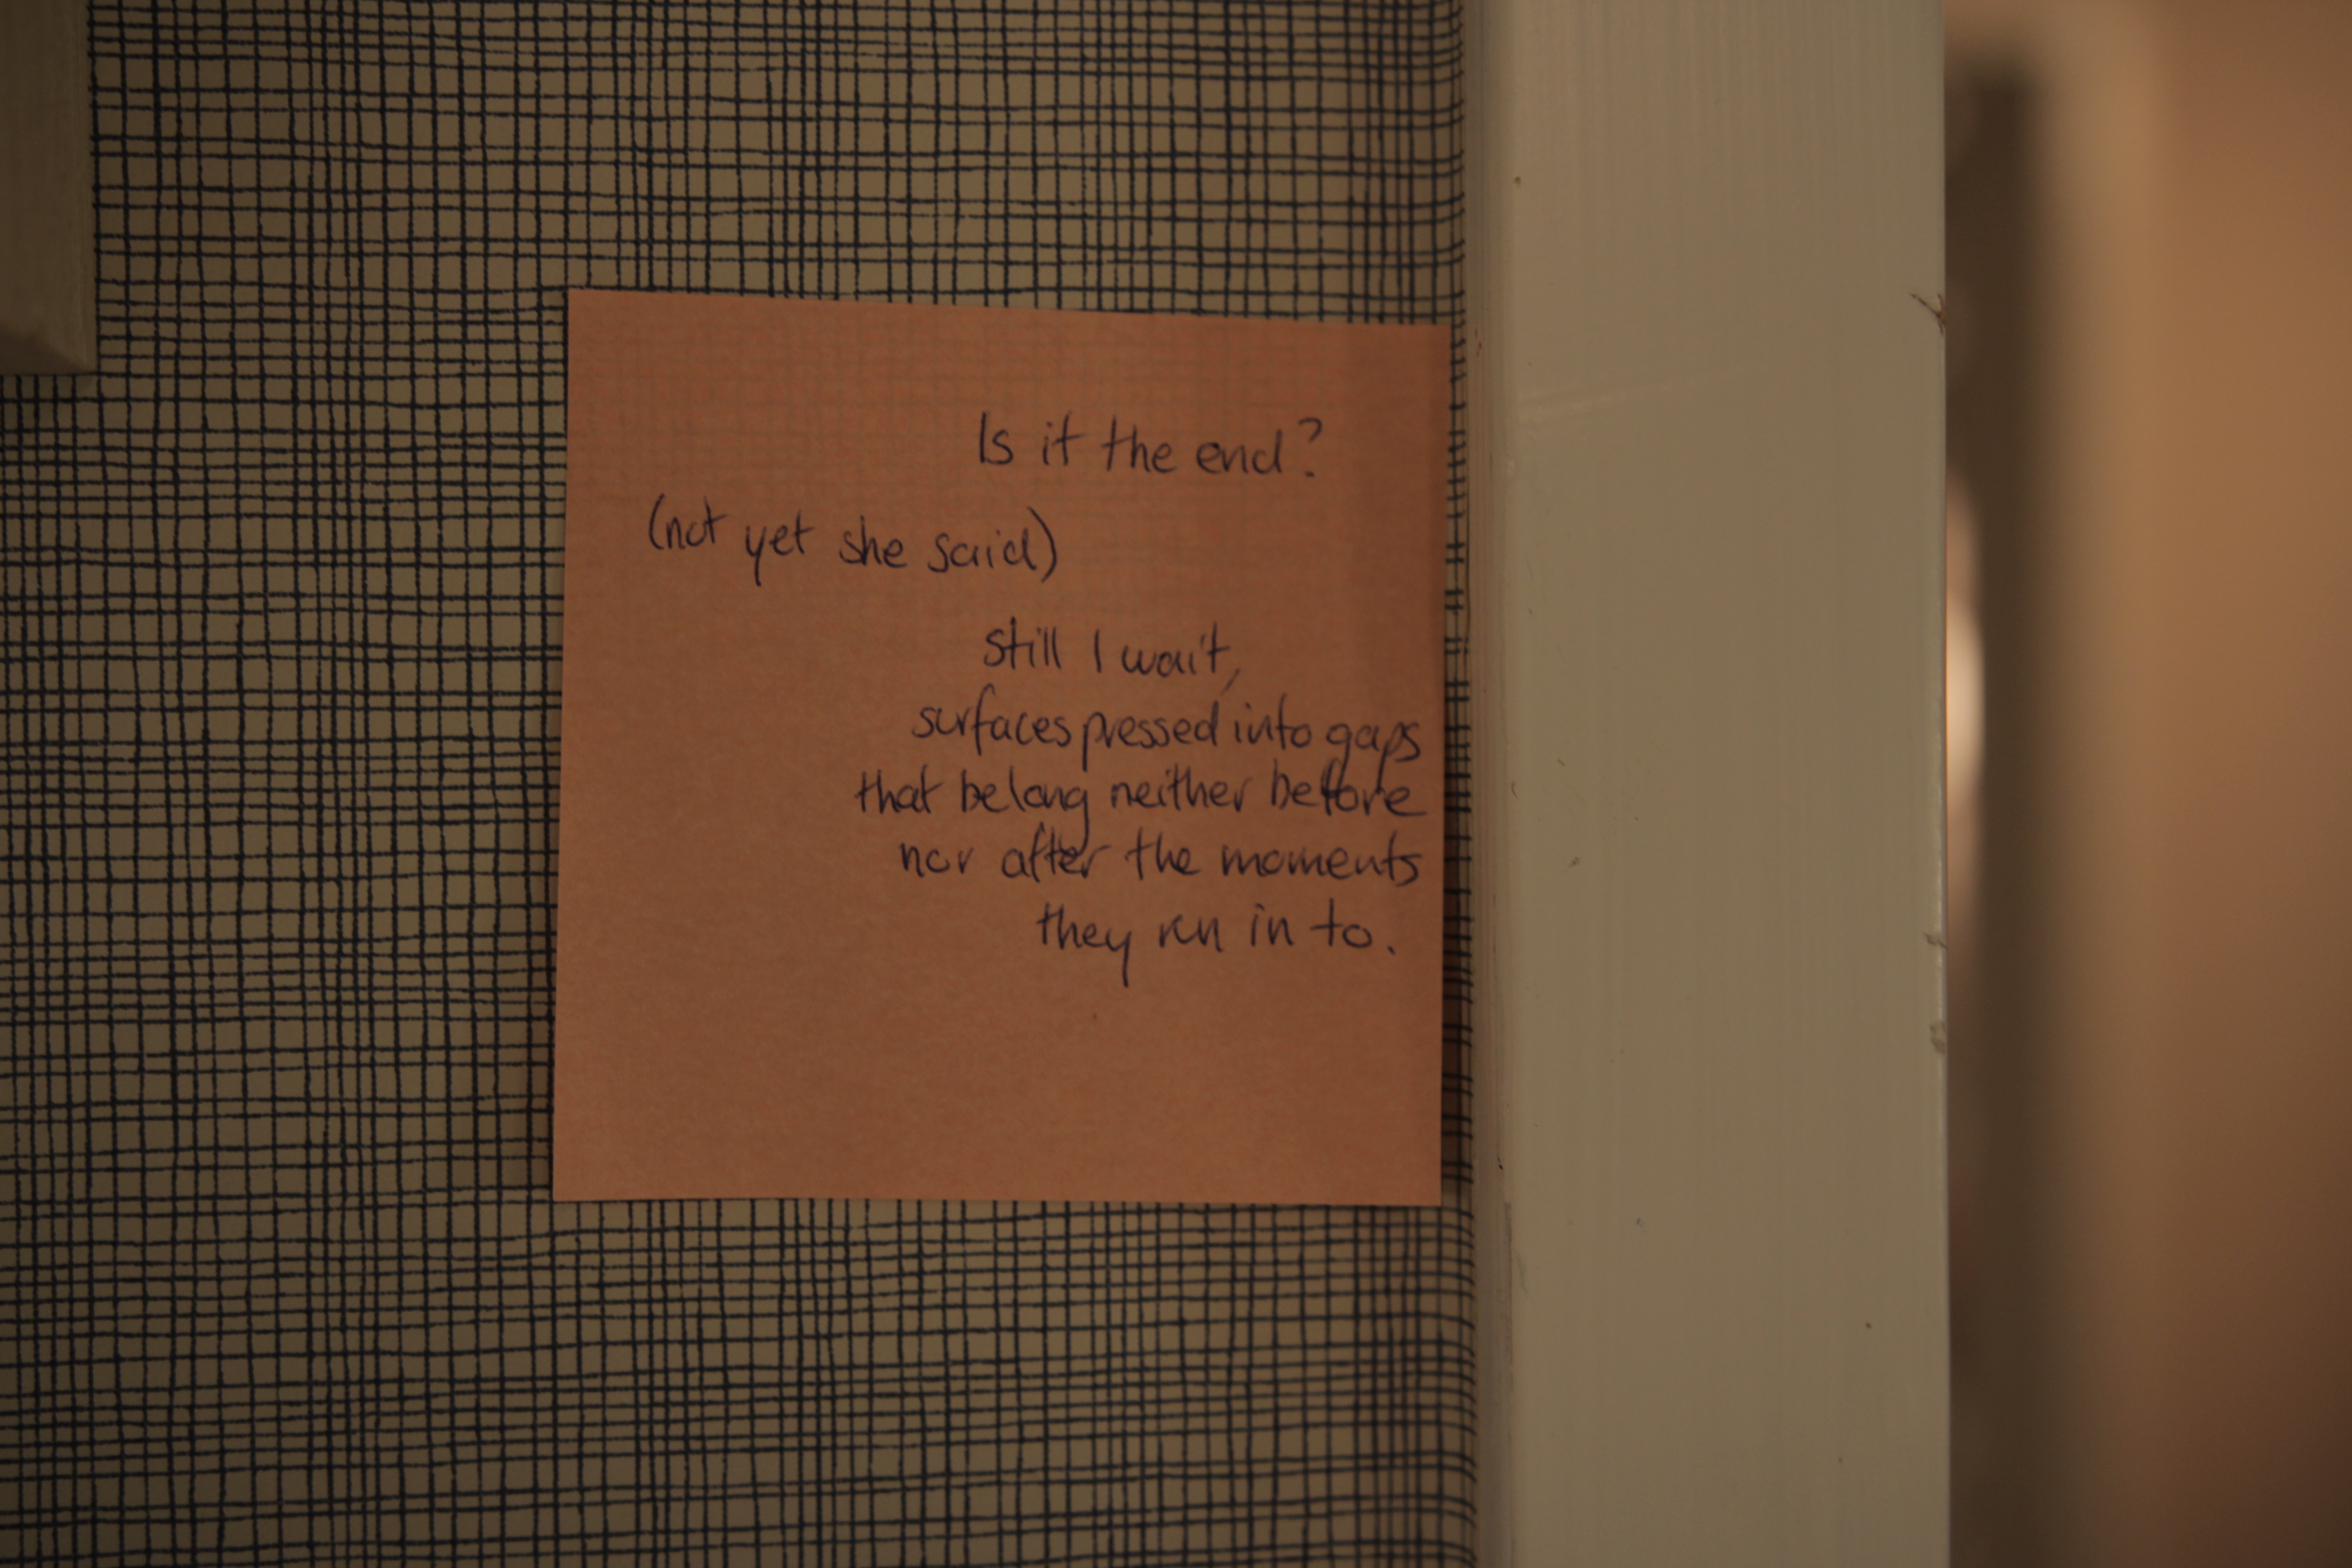 Is it the end?
(not yet she said)
still I wait,
surfaces pressed into gaps
that belong neither before
nor after the moments
they run in to.